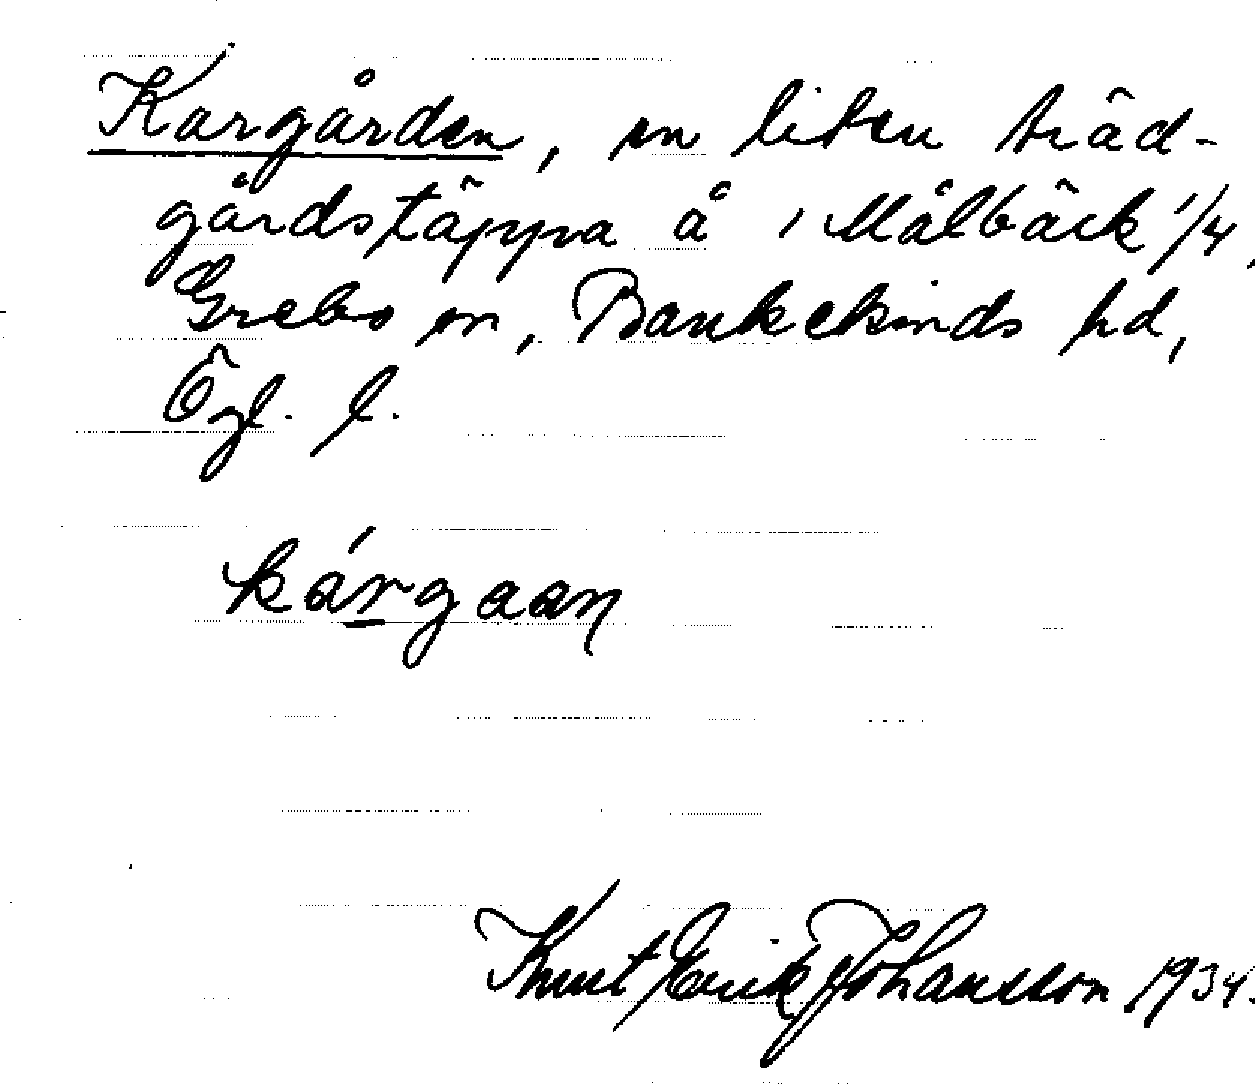 Kargården, en liten träd-
gårdstäppa å 1 Målbäck 1/4,
Grebo sn, Bankekinds hd,
Ögl. l.
kárgaan
Knut Erik Johansson 1934.